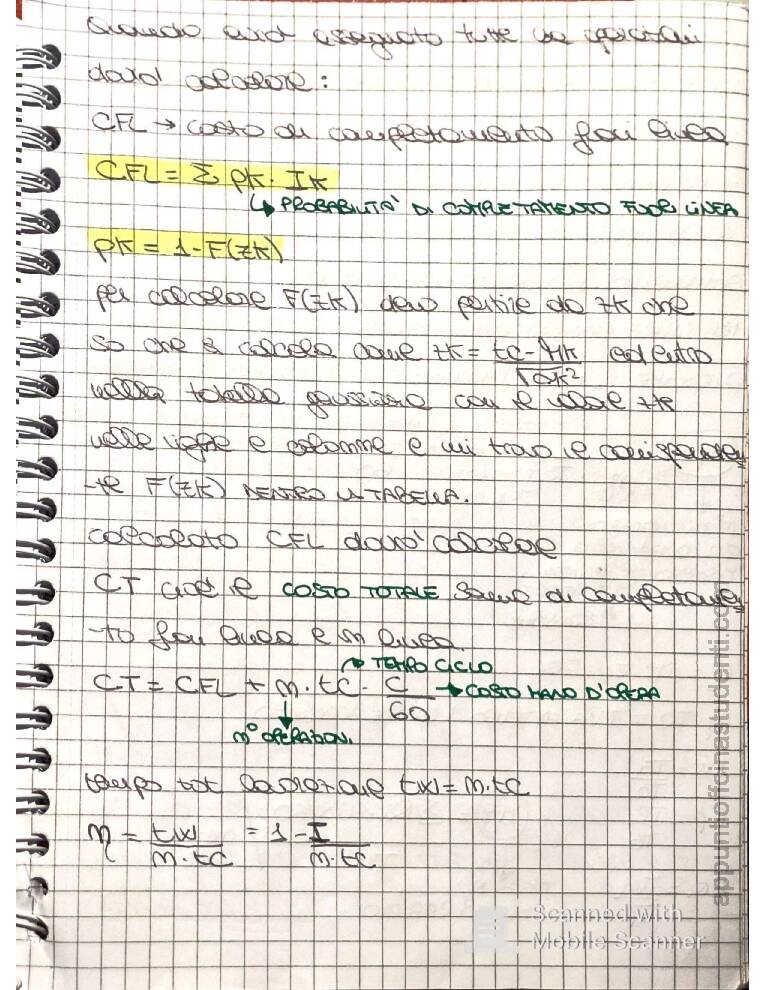 Quando avrò assegnato tutte le operazioni
dovrò calcolare:
CFL → costo di completamento fuori linea
CFL = Σ pk · Ik
↳ PROBABILITÀ DI COMPLETAMENTO FUORI LINEA
pk = 1 - F(zk)
per calcolare F(zk) devo partire da zk che
so che si calcola come zk = tc - μk / √σk² ed entro
nella tabella gaussiana con il valore zk
nelle righe e colonne e mi trovo il corrisponden
-te F(zk) DENTRO LA TABELLA.
calcolato CFL dovrò calcolare
CT cioè il COSTO TOTALE somma di completamen
-to fuori linea e in linea.
→ TEMPO CICLO
CT = CFL + m · tc · C / 60 → COSTO MANO D'OPERA
↓
n° OPERATORI
tempo tot lavorazione t(x) = m · tc
η = t(x) / m · tc = 1 - I / m · tc
appuntiofficinastudenti.com
Scanned with
Mobile Scanner